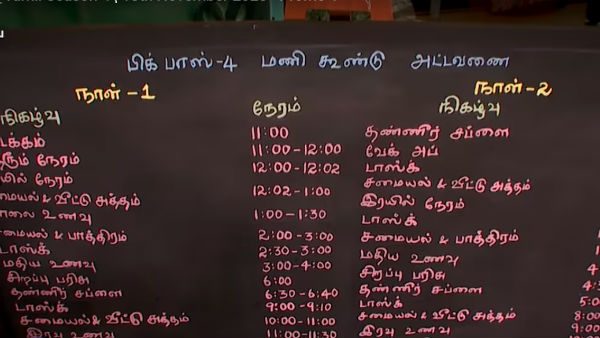 பிக் பாஸ்-4 மணி கூண்டு அட்டவணை
நாள்-1 நாள்-2
நிகழ்வு நேரம் நிகழ்வு
டக்கம் 11:00 தண்ணீர் சப்ளை
நேரம் 11:00-12:00 வேக் அப்
யில் நேரம் 12:00-12:02 டாஸ்க்
மையல் & வீட்டு சுத்தம் 12:02-1:00 சமையல் & வீட்டு சுத்தம்
லை உணவு 1:00-1:30 இரயில் நேரம்
டாஸ்க்
மையல் & பாத்திரம் 2:00-3:00 சமையல் & பாத்திரம்
டாஸ்க் 2:30-3:00 மதிய உணவு
மதிய உணவு 3:00-4:00 சிறப்பு பரிசு
சிறப்பு பரிசு 6:00 தண்ணீர் சப்ளை
தண்ணீர் சப்ளை 6:30-6:40 டாஸ்க்
டாஸ்க் 9:00-9:10 சமையல் & வீட்டு சுத்தம்
சமையல் & வீட்டு சுத்தம் 10:00-11:00 இரவு உணவு
இரவு உணவு 11:00-11:30